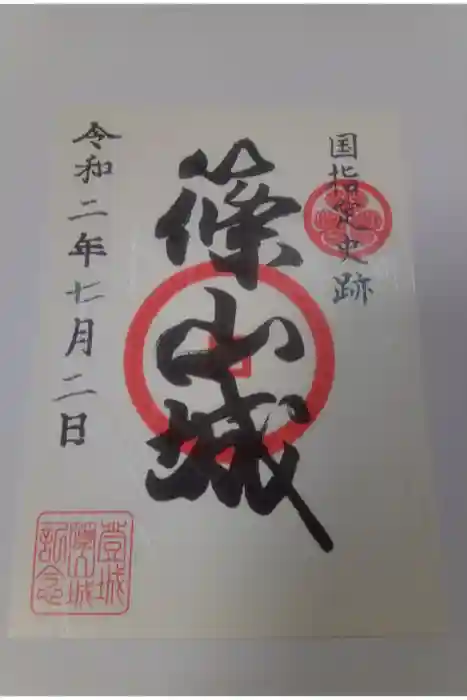 国指定史跡
篠山城
令和二年七月二日
登城
篠山城
記念